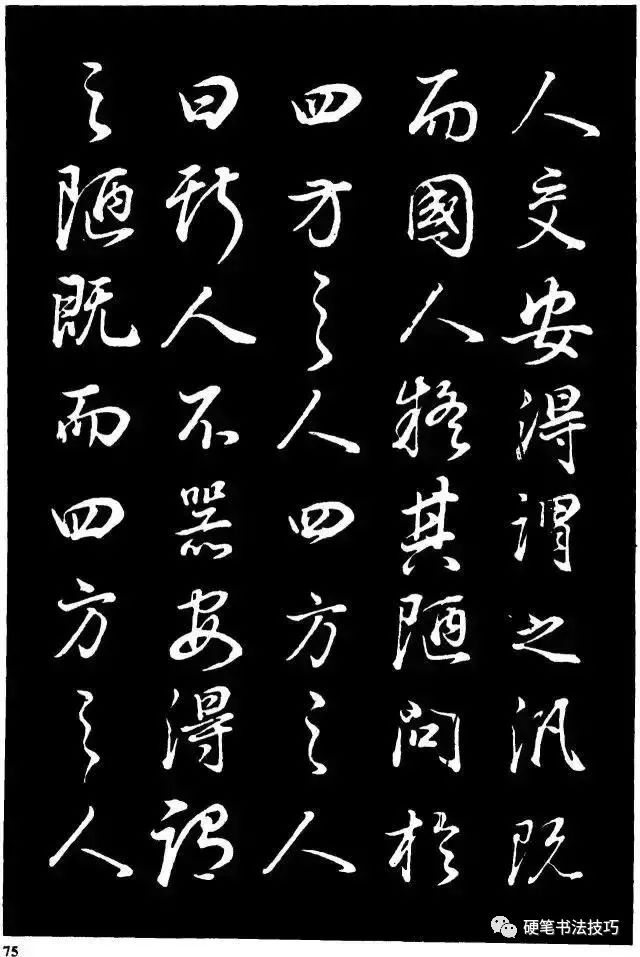 人交安得謂之汎既
而國人疑其陋問於
四方之人四方之人
曰斯人不器安得謂
之陋既而四方之人
75
硬笔书法技巧